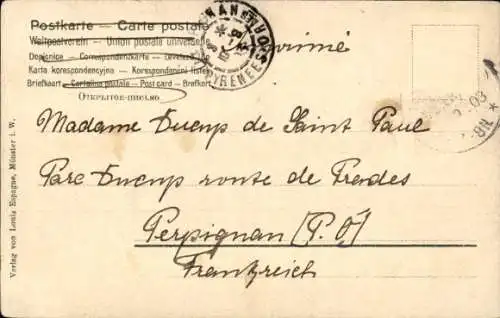 Postkarte — Carte postale
Weltpostverein — Union postale universelle
Dopisnice — Correspondenzkarte — Levelező
Karta korespondencyjna — Korespondenční lístek
Briefkaart — Cartolina postale — Post card — Brefkort
Открытое письмо
Imprimé
PYRENEES
03
Madame Ducup de Saint Paul
Parc Ducup route de Prades
Perpignan (P. O)
Frankreich
Verlag von Louis Espagne, Münster i. W.